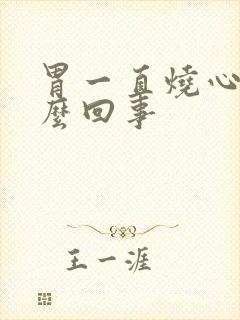 胃一直燒心
麼回事
王一涯